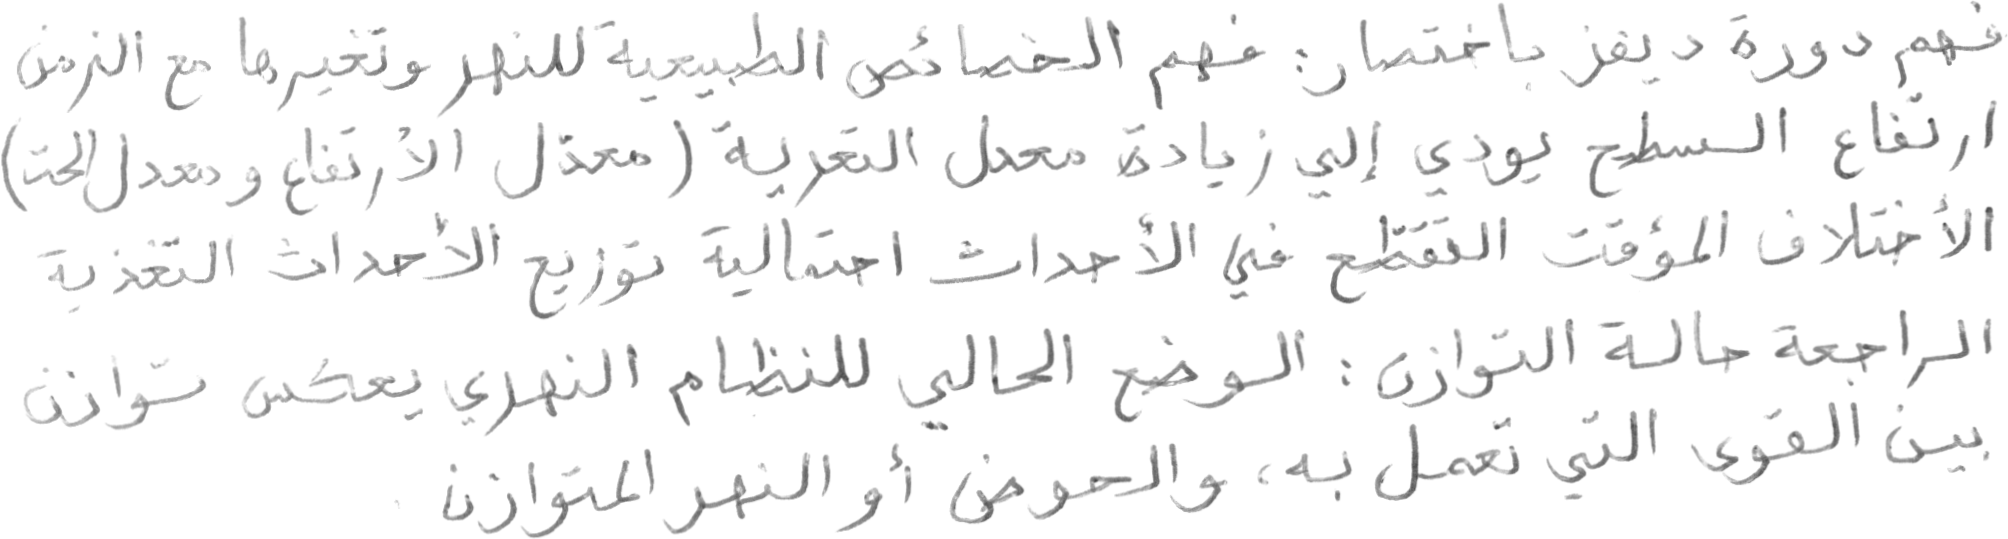 فهم دورة ديفز باختصار: فهم الخصائص الطبيعية للنهر وتغيرها مع الزمن
ارتفاع السطح يودي إلي زيادة معدل التعرية (معدل الأرتفاع ومعدل الحت)
الأختلاف المؤقت التقطع في الأحداث احتمالية توزيع الأحداث التغذية
الراجعة حالة التوازن: الوضع الحالي للنظام النهري يعكس توازن
بين القوى التي تعمل به، والحوض أو النهر المتوازن